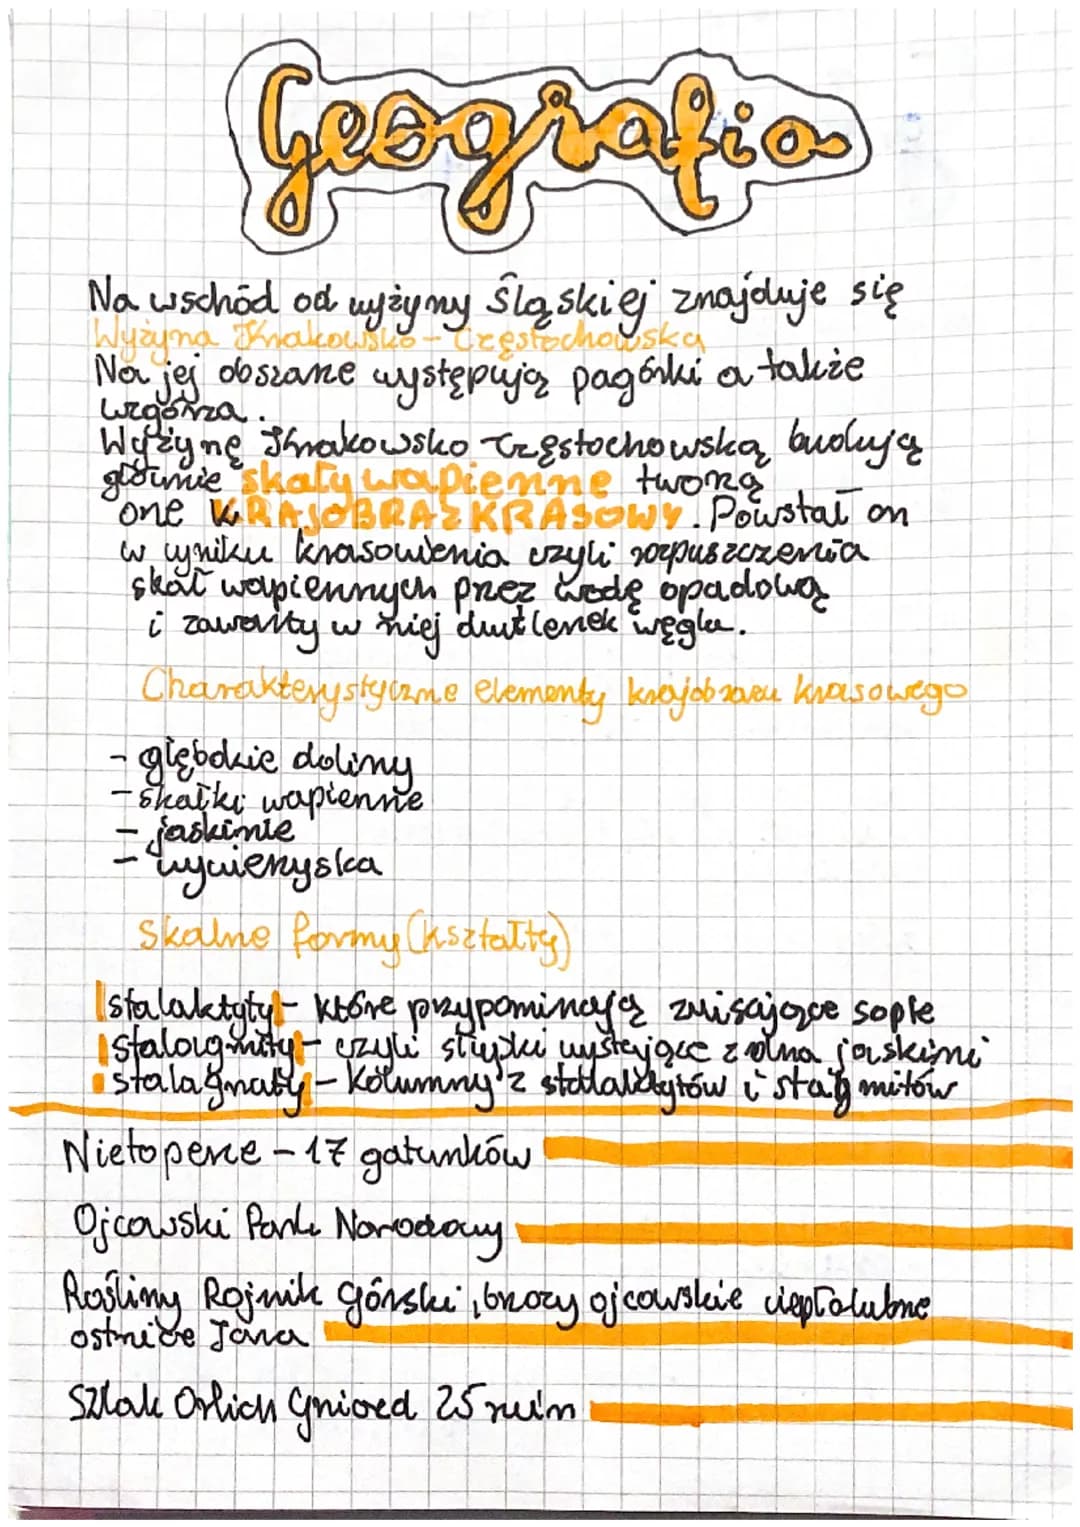 Geografia
Na wschód od wyżyny Śląskiej znajduje się
Wyżyna Krakowsko - Częstochowska
Na jej obszarze występują pagórki a także
wzgórza.
Wyżynę Krakowsko Częstochowską budują
głównie skały wapienne tworzą
one KRAJOBRAZ KRASOWY. Powstał on
w wyniku krasowienia czyli rozpuszczenia
skał wapiennych przez wodę opadową
i zawarty w niej dwutlenek węgla.
Charakterystyczne elementy krajobrazu krasowego
- głębokie doliny
- skałki wapienne
- jaskinie
- wywierzyska
Skalne formy (kształty)
stalaktyty - które przypominają zwisające sople
stalagmity - czyli słupki wystające z dna jaskini
stalagnaty - kolumny z stalaktytów i stagmitów
Nietoperze - 17 gatunków
Ojcowski Park Narodowy
Rośliny Rojnik górski, brzozy ojcowskie ciepłolubne
ostnice Jana
Szlak Orlich Gniazd 25 ruin